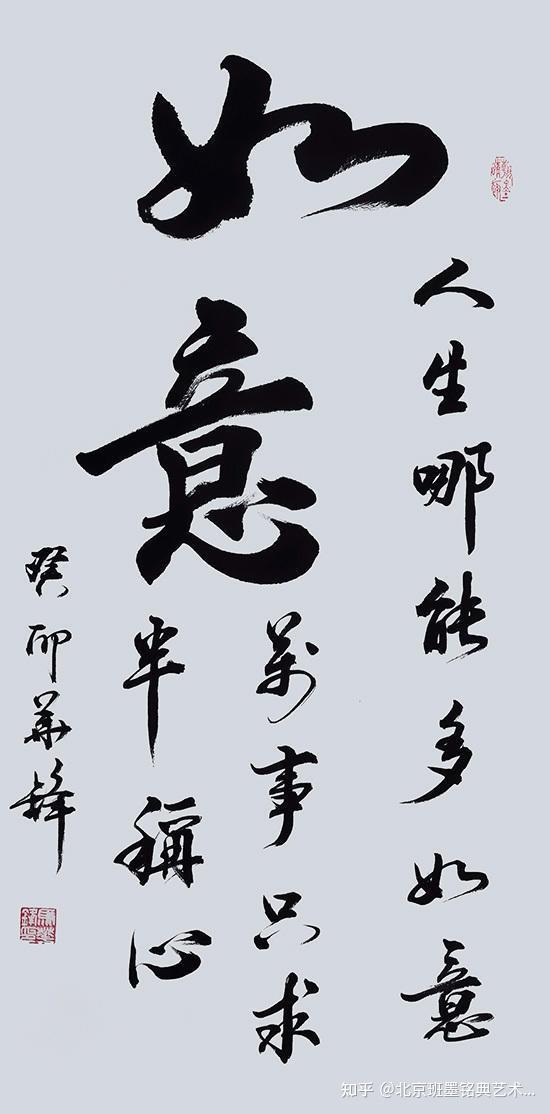 如意
人生哪能多如意
萬事只求
半稱心
癸卯華鋒
知乎 @北京班墨铭典艺术...